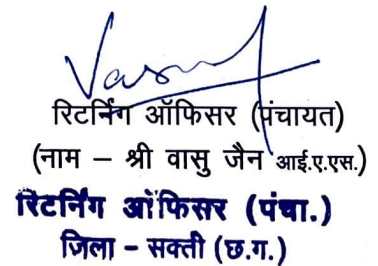 रिटर्निंग ऑफिसर (पंचायत)
(नाम – श्री वासु जैन आई.ए.एस.)
रिटर्निंग ऑफिसर (पंचा.)
जिला - सक्ती (छ.ग.)